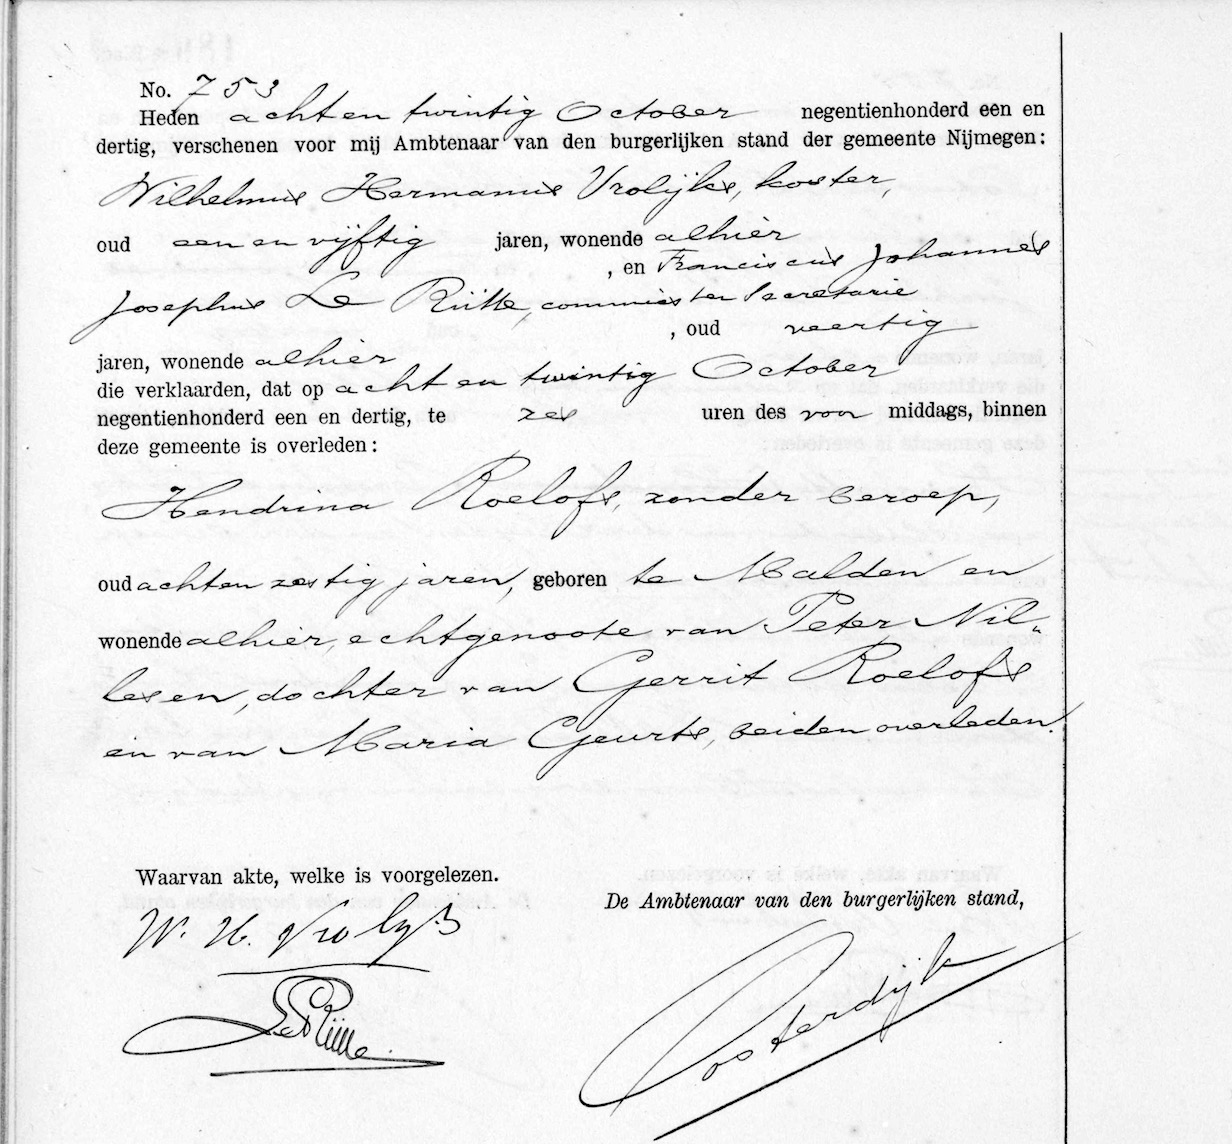 No. 753
Heden acht en twintig October negentienhonderd een en
dertig, verschenen voor mij Ambtenaar van den burgerlijken stand der gemeente Nijmegen:
Wilhelmus Hermanus Vrolijks, koster,
oud een en vijftig jaren, wonende alhier
, en Franciscus Johannes
Josephus Le Rütte, commies ter Secretarie
, oud veertig
jaren, wonende alhier
die verklaarden, dat op acht en twintig October
negentienhonderd een en dertig, te zes uren des voor middags, binnen
deze gemeente is overleden:
Hendrina Roelofs, zonder beroep,
oud acht en zestig jaren, geboren te Malden en
wonende alhier, echtgenoote van Peter Nil„
lesen, dochter van Gerrit Roelofs
en van Maria Geurts, beiden overleden.
Waarvan akte, welke is voorgelezen.
De Ambtenaar van den burgerlijken stand,
W. H. Vrolijks
Le Rütte
Oosterdijk